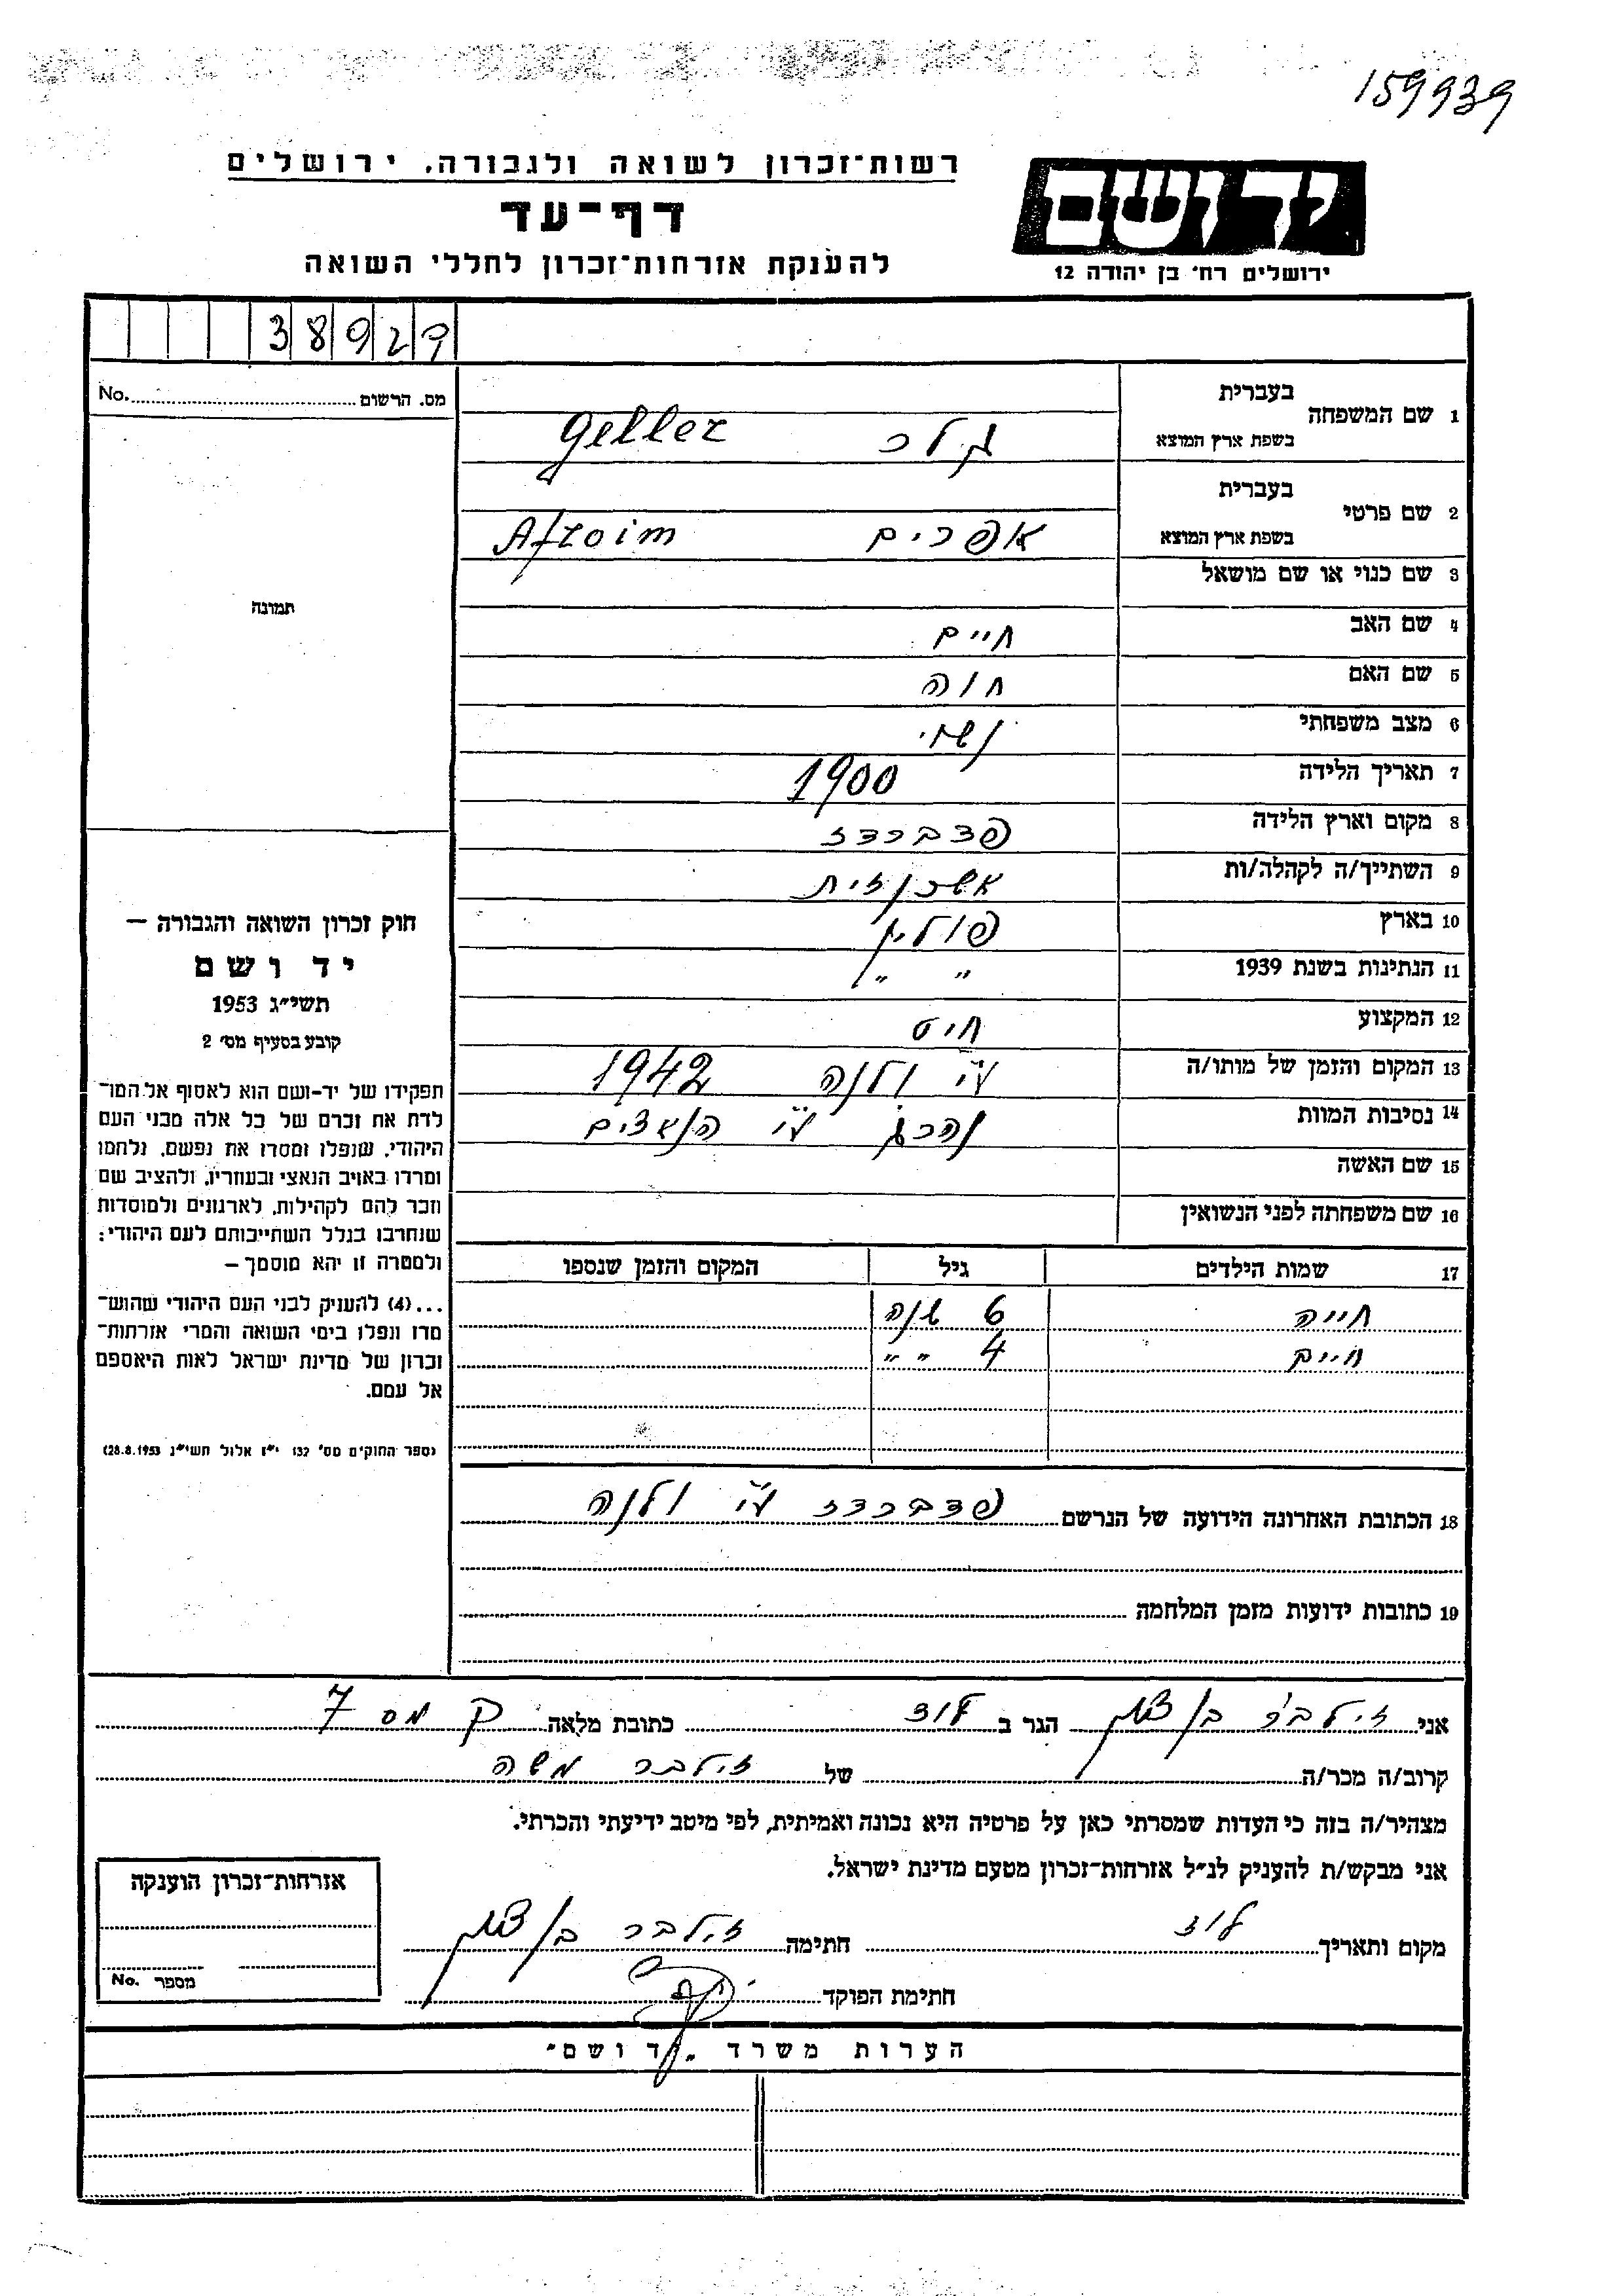 159939
רשות־זכרון לשואה ולגבורה, ירושלים
יד ושם
דף־עד
להענקת אזרחות־זכרון לחללי השואה
ירושלים רח׳ בן יהודה 12
38929
מס. הרשום No.
תמונה
1 שם המשפחה בעברית
בשפת ארץ המוצא גלר Geller
2 שם פרטי בעברית
בשפת ארץ המוצא אפרים Afroim
3 שם כנוי או שם מושאל
4 שם האב חיים
5 שם האם חוה
6 מצב משפחתי נשוי
7 תאריך הלידה 1900
8 מקום וארץ הלידה פדברדז
9 השתייך/ה לקהלה/ות אשכנזית
10 בארץ פולין
11 הנתינות בשנת 1939 " "
12 המקצוע חיט
13 המקום והזמן של מותו/ה ע"י וילנה 1942
14 נסיבות המוות נהרג ע"י הנאצים
15 שם האשה
16 שם משפחתה לפני הנשואין
17 שמות הילדים גיל המקום והזמן שנספו
חייה 6 שנה
חיים 4 " "
18 הכתובת האחרונה הידועה של הנרשם פדברדז ע"י וילנה
19 כתובות ידועות מזמן המלחמה
חוק זכרון השואה והגבורה –
יד ושם
תשי״ג 1953
קובע בסעיף מס׳ 2
תפקידו של יד-ושם הוא לאסוף אל המו־
לדת את זכרם של כל אלה מבני העם
היהודי, שנפלו ומסרו את נפשם, נלחמו
ומרדו באויב הנאצי ובעוזריו, ולהציב שם
וזכר להם לקהילות, לארגונים ולמוסדות
שנחרבו בגלל השתייכותם לעם היהודי;
ולמטרה זו יהא מוסמך –
...(4) להעניק לבני העם היהודי שהוש־
מדו ונפלו בימי השואה והמרי אזרחות־
זכרון של מדינת ישראל לאות היאספם
אל עמם.
(ספר החוקים מס׳ 132 י״ז אלול תשי״ג 28.8.1953)
אני זילבר בן ציון הגר ב לוד כתובת מלאה ק מס 7
קרוב/ה מכר/ה של זילבר משה
מצהיר/ה בזה כי העדות שמסרתי כאן על פרטיה היא נכונה ואמיתית, לפי מיטב ידיעתי והכרתי.
אני מבקש/ת להעניק לנ״ל אזרחות־זכרון מטעם מדינת ישראל.
מקום ותאריך לוד חתימה זילבר בן ציון
חתימת הפוקד
אזרחות־זכרון הוענקה
מספר No.
הערות משרד „יד ושם״